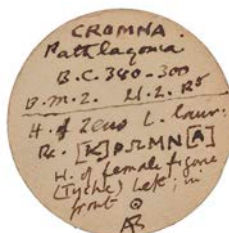 CROMNA.
Paphlagonia
B.C. 340-300
B.M.2. H.2. R5
H. of Zeus L. laur:
R. [K]ΡΩΜΝ[A]
H. of female figure
(Tyche) Left; in
front ⊙
AR